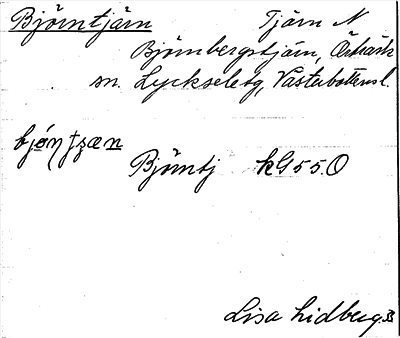 Björntjärn Tjärn N
Björnbergstjärn, Örträsk
sn. Lyckseleog, Västerbottensl.
Björntj kG 55.O
Lisa Lidberg.